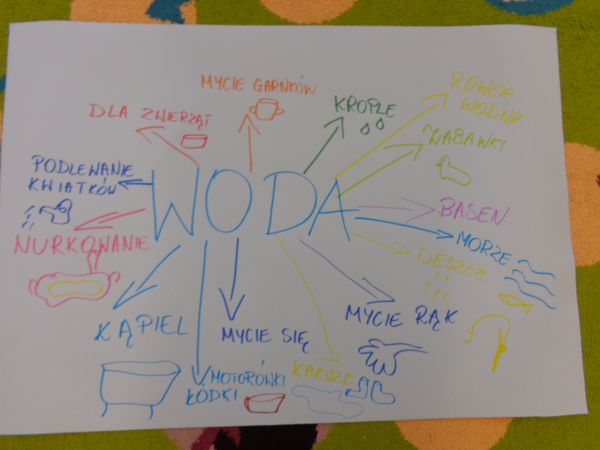 MYCIE GARNKÓW
DLA ZWIERZĄT
KROPLE
ROWER
WODNY
ZABAWKI
PODLEWANIE
KWIATKÓW
WODA
BASEN
NURKOWANIE
MORZE
DESZCZ
KĄPIEL
MYCIE SIĘ
MYCIE RĄK
KAŁUŻE
MOTORÓWKI
ŁODKI